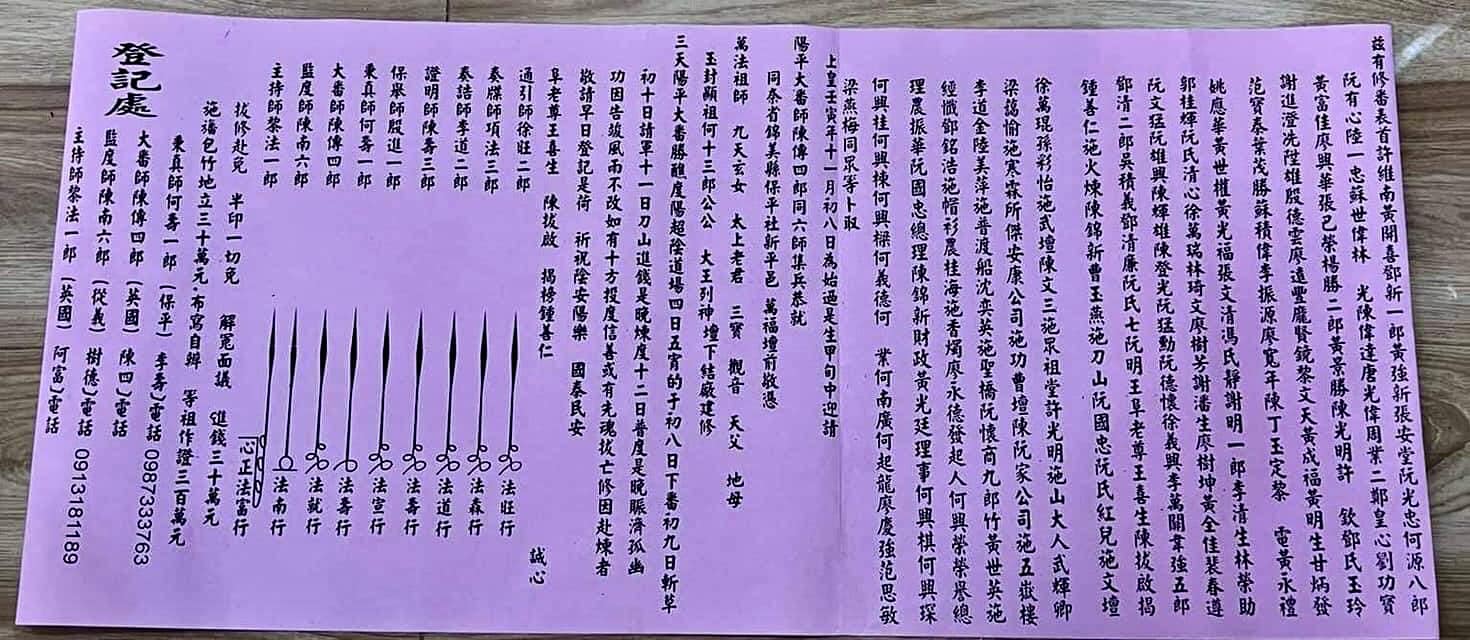 茲有修番表首許維南黃開喜鄧新一郎黃強新張安堂阮光忠何源八郎
阮有心陸一忠蘇世偉林 光陳偉達唐光偉周業二鄭皇心劉功寶
黃富佳廖興華張己榮楊勝二郎黃景勝陳光明許 欽鄧氏玉玲
謝進澄冼陞雄殷德雲廖遠豐龐賢鏡黎文天黃成福黃明生甘炳發
范寶泰葉茂勝蘇積偉李振源廖寬年陳丁玉定黎 電黃永禮
姚應華黃世權黃光福張文清馮氏靜謝明一郎李清生林榮助
郭桂輝阮氏清心徐萬瑞林琦文廖樹芳謝潘生廖樹坤黃全佳裴春遵
阮文猛阮雄興陳輝雄陳登光阮猛勳阮德懷徐義興李萬開韋強五郎
鄧清二郎吳積義鄧清廉阮氏七阮明王阜老尊王喜生陳拔啟揭
鍾善仁施火煉陳錦新曹玉燕施刀山阮國忠阮氏紅兒施文壇
徐萬琨孫彩怡施武壇陳文三施眾祖堂許光明施山大人武輝卿
梁藹愉施寒霖所傑安康公司施功曹壇陳阮家公司施五嶽樓
李道金陸美萍施普渡船沈奕英施聖橋阮懷商九郎竹黃世英施
經懺鄧銘浩施帽衫農桂海施香燭廖永德發起人何興榮榮譽總
理農振華阮國忠總理陳錦新財政黃光廷理事何興棋何興琛
何興桂何興棟何興樑何義德何 業何南廣何起龍廖慶強范思敏
梁燕梅同眾等卜取
上皇壬寅年十一月初八日為始過是生甲旬中迎請
陽平大番師陳傳四郎同六師集兵恭就
同奈省錦美縣保平社新平邑 萬福壇前敬憑
萬法祖師 九天玄女 太上老君 三寶 觀音 天父 地母
玉封顯祖何十三郎公公 大王列神壇下結廠建修
三天陽平大番勝醮度陽超陰道場四日五宵的于初八日下番初九日斬草
初十日請軍十一日刀山進錢是晚煉度十二日普度是晚賑濟孤幽
功因告竣風雨不改如有十方投度信善或有先魂拔亡修因赴煉者
敬請早日登記是荷 祈祝陰安陽樂 國泰民安
阜老尊王喜生 陳拔啟 揭榜鍾善仁 誠心
通引師徐旺二郎
奏牒師項法三郎
奏誥師李道二郎
證明師陳壽三郎
保舉師殷進一郎
秉真師何壽一郎
大番師陳傳四郎
監度師陳南六郎
主持師黎法一郎
法旺行
法森行
法道行
法壽行
法宣行
法壽行
法就行
法南行
心正法富行
登記處
拔修赴免 半印一切免 解冤面議 進錢三十萬元
施福包竹地立三十萬元 布寫自辦 等祖作證三百萬元
秉真師何壽一郎 (保平) 李壽)電話 0987333763
大番師陳傳四郎 (英國) 陳四)電話
監度師陳南六郎 (從義) 樹德)電話 0913181189
主持師黎法一郎 (英國) 阿富)電話